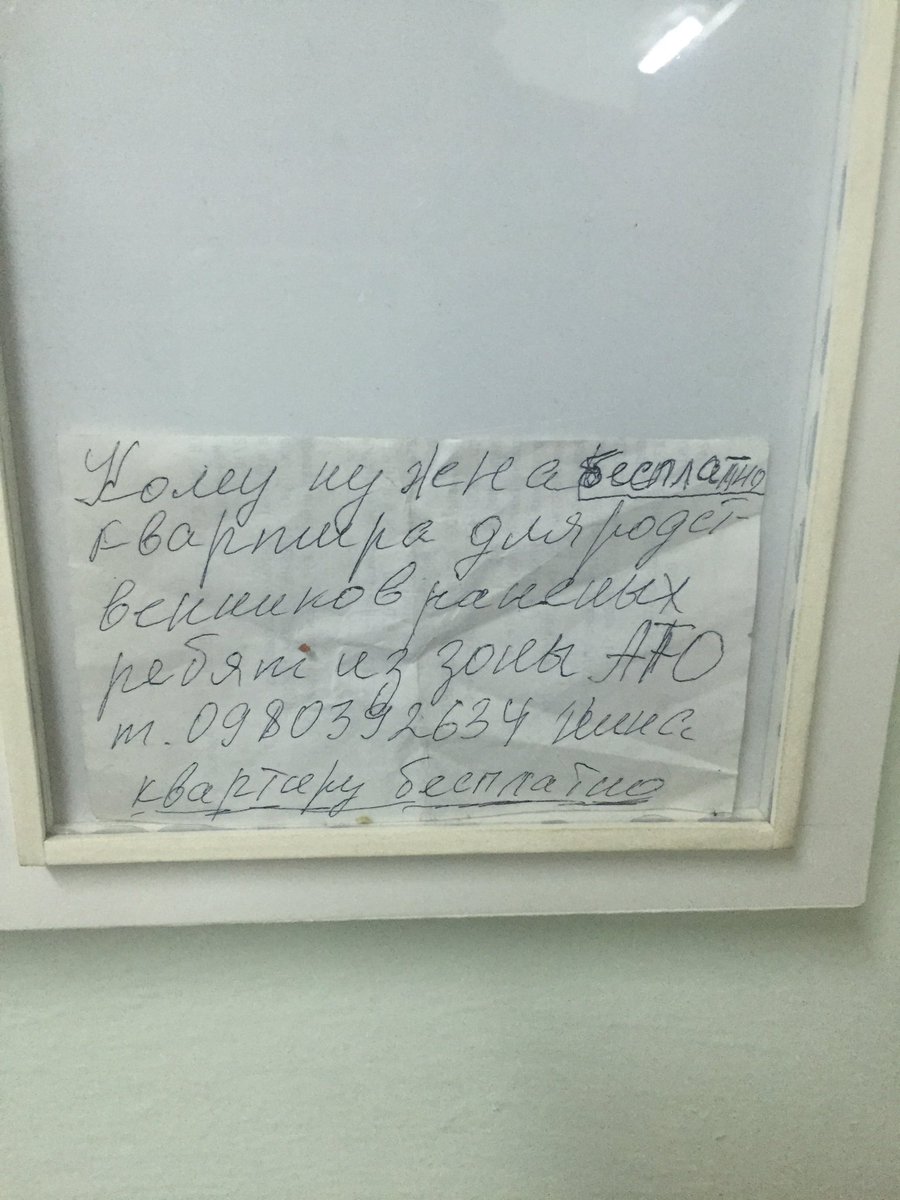 Кому нужна бесплатно
квартира для родст-
венников раненых
ребят из зоны АТО
т. 0980392634
квартиру бесплатно